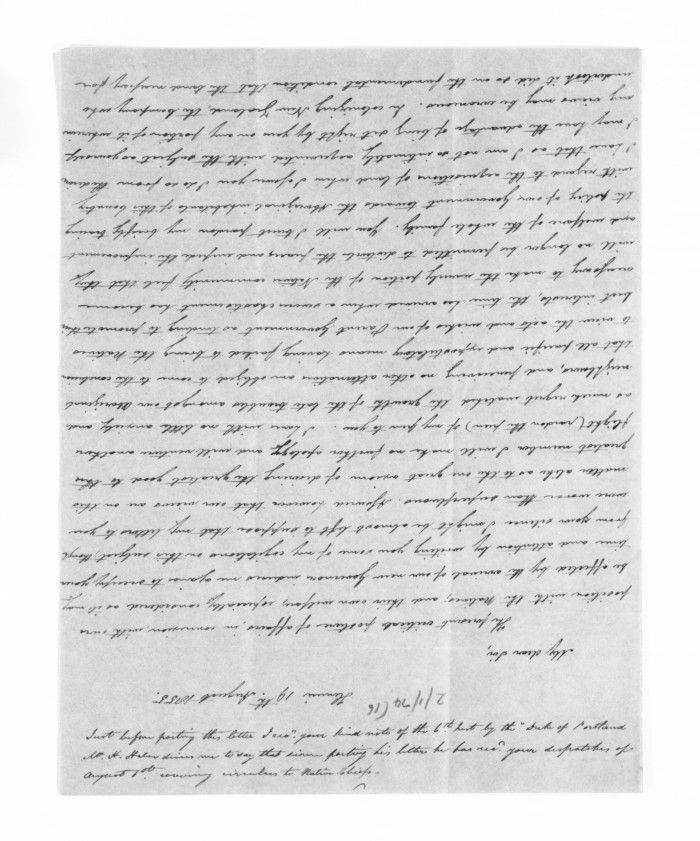 Henui 19th August 1855.
My dear Sir,
The present critical posture of affairs, in connexion with our
position with the Natives, and their own welfare, especially considered as it may
be affected by the arrival of our new Governor induces me again to occupy your
time and attention by writing you some of my cogitations on this subject; though
from your silence I might be almost left to suppose that my letters to you
were worse than superfluous. Assured however that our views are on this
matter alike as to the one great axiom of desiring the greatest good to the
greatest number I will make no further apology and will venture another
flight ( of my pen to you. I have with no little anxiety and
as much regret watched the growth of the late troubles amongst our Aboriginal
neighbours, and perceiving no other alternative am obliged to come to the conclusion
that all pacific and expostulatory means having failed to bring the Natives
to view the acts and wishes of our Parent government as tending to promote their
best interests, the time has arrived when a severe chastisement has become
necessary to make the unruly portion of the Native community feel that they
will no longer be permitted to disturb the peace and impede the improvement
and welfare of the whole family. You will I trust pardon my briefly tracing
the policy of our government towards the Aboriginal inhabitants of this Country
with regard to the acquisition of land when I assure you I do so from the idea
I have that as I am not so intimately acquainted with the subject as yourself
I may have the advantage of being set right by you on any portion of it wherein
my views may be erroneous. In colonizing New Zealand, the Company who
undertook it did so on the fundamental condition that the land necessary for
Just before posting this letter I recd. your kind note of the 6th inst by the "Duke of Portland
Mr. H. Halse desires me to say that since posting his letter he has recd. your despatches of
August 1st covering circulars to Native Chiefs.